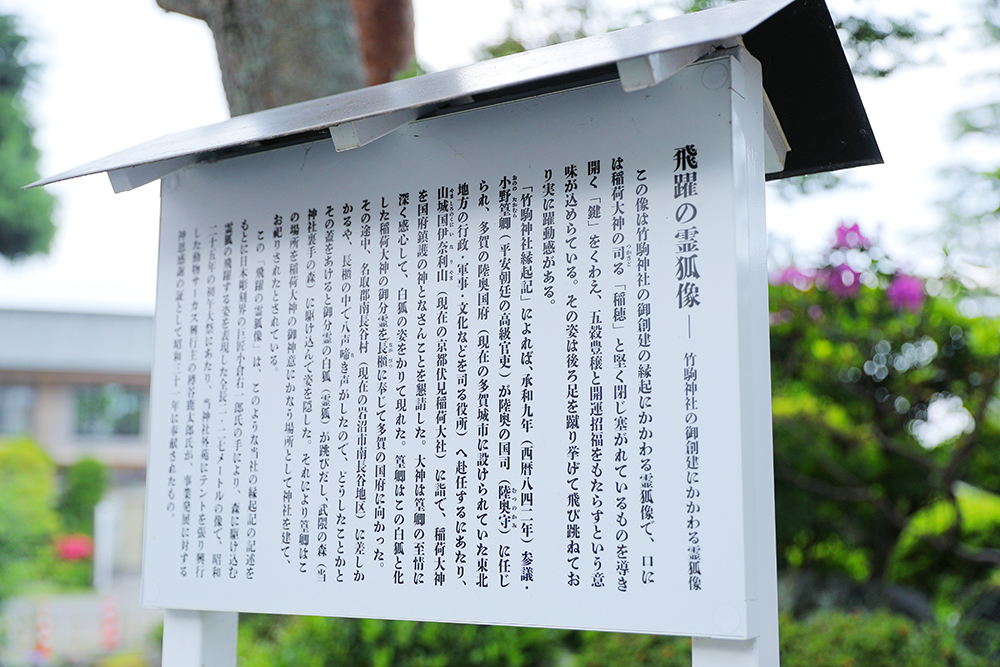 飛躍の霊狐像 ― 竹駒神社の御創建にかかわる霊狐像
この像は竹駒神社の御創建の縁起にかかわる霊狐像で、口に
は稲荷大神の司る「稲穂」と堅く閉じ塞がれているものを導き
開く「鍵」をくわえ、五穀豊穣と開運招福をもたらすという意
味が込めらている。その姿は後ろ足を蹴り挙げて飛び跳ねてお
り実に躍動感がある。
「竹駒神社縁起記」によれば、承和九年（西暦八四二年）参議・
小野篁卿（平安朝廷の高級官吏）が陸奥の国司（陸奥守）に任じ
られ、多賀の陸奥国府（現在の多賀城市に設けられていた東北
地方の行政・軍事・文化などを司る役所）へ赴任するにあたり、
山城国伊奈利山（現在の京都伏見稲荷大社）に詣で、稲荷大神
を国府鎮護の神となさんことを懇請した。大神は篁卿の至情に
深く感心して、白狐の姿をかりて現れた。篁卿はこの白狐と化
した稲荷大神の御分霊を長櫃に奉じて多賀の国府に向かった。
その途中、名取郡南長谷村（現在の岩沼市南長谷地区）に差しか
かるや、長櫃の中で八声啼き声がしたので、どうしたことかと
その蓋をあけると御分霊の白狐（霊狐）が跳びだし、武隈の森（当
神社裏手の森）に駆け込んで姿を隠した。それにより篁卿はこ
の場所を稲荷大神の御神意にかなう場所として神社を建て、
お祀りされたとされている。
この「飛躍の霊狐像」は、このような当社の縁起記の記述を
もとに日本彫刻界の巨匠小倉右一郎氏の手により、森に駆け込む
霊狐の飛躍する姿を表現した全長二・二七メートルの像で、昭和
二十五年の初午大祭にあたり、当神社外苑にテントを張り興行
した動物サーカス興行主の樽谷鹿太郎氏が、事業発展に対する
神恩感謝の証として昭和三十一年に奉献されたもの。